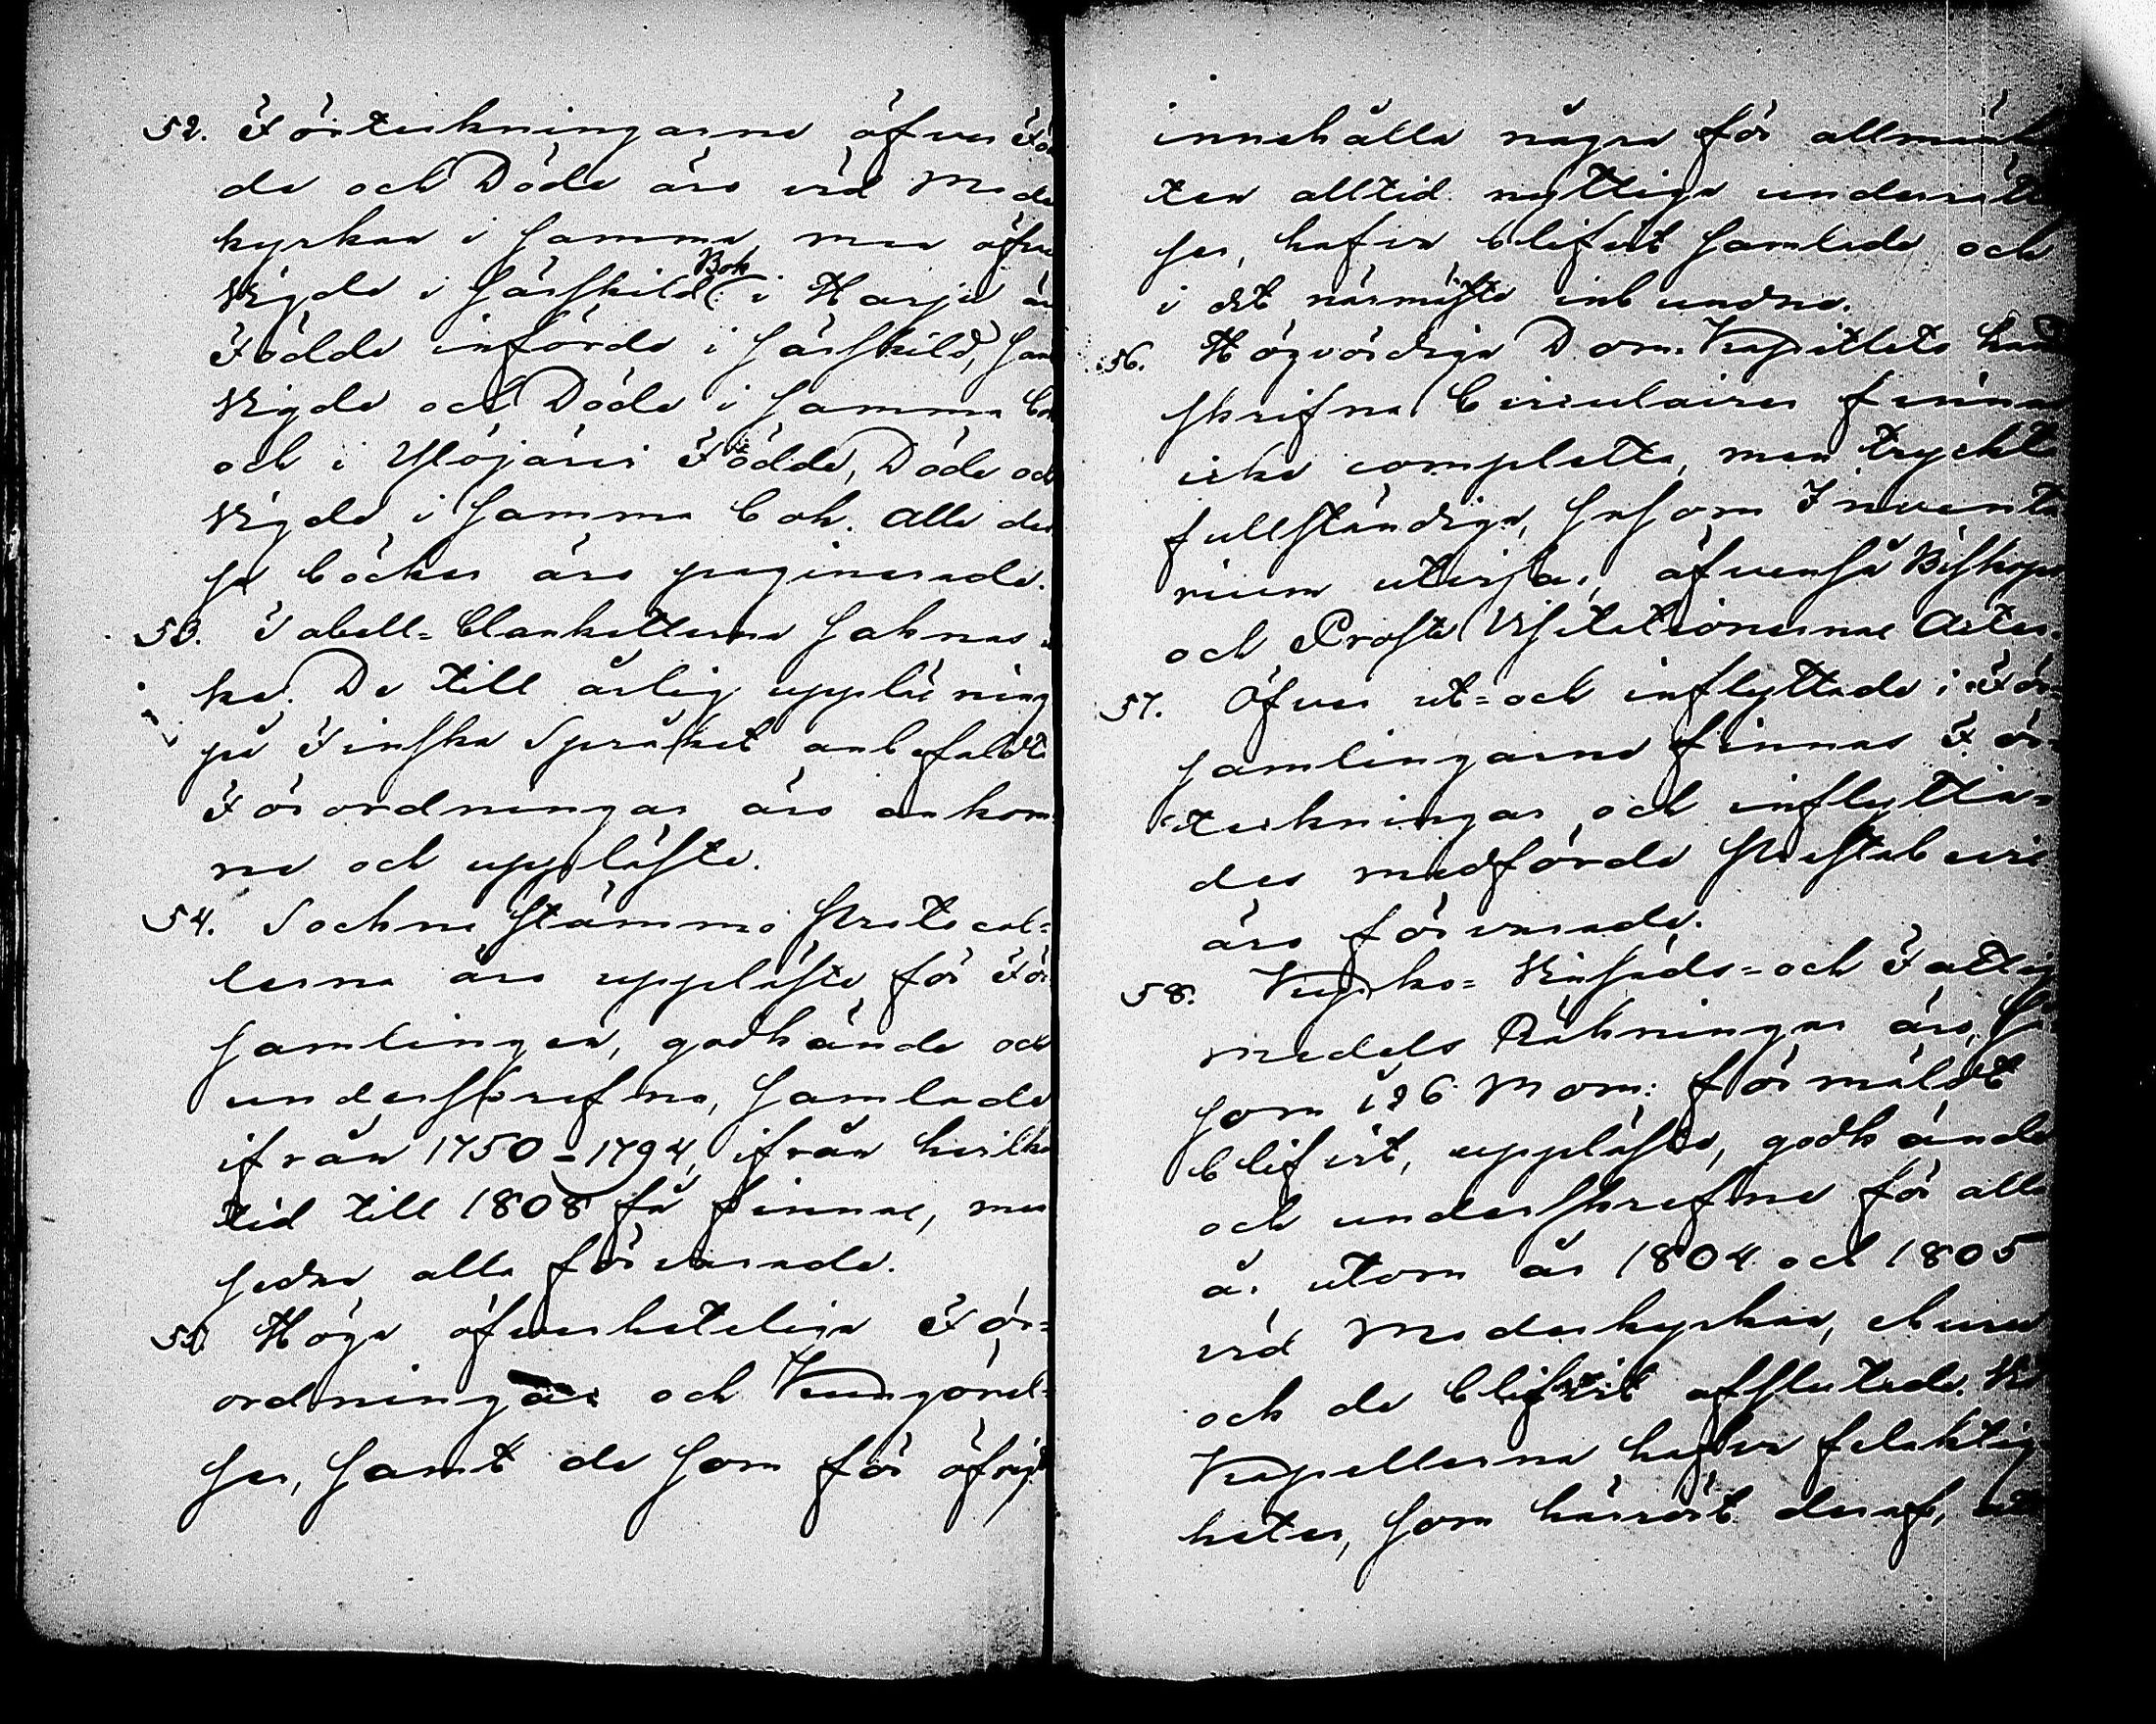 52. Förteckningarne öfver Föd
de och Döde äro vid Mode
kyrkan i samma, men öfver
Vigde i särskild Bok. i Harju är
Födde införde i särskild, sam
Vigde och Döde i samma bok
och i Ylöjärvi Födde, Döde och
Vigde i samma bok. Alle des
se böcker äro paginerade.
53. Tabell-blanketterne saknas ic
ke. De till årlig uppläsning
på Finska Språket anbefaldte
Förordningar äro ankom
ne och uppläste.
54. Sockne stämmo Protocol-
lerna äro uppläste för För
samlingen, godkände och
underskrefne, samlade
ifrån 1750-1794, ifrån hvilken
tid till 1808 få finnas, men
sedan alla förvarade.
55. Höga öfverheteliga För-
ordningar och Kungörel-
ser, samt de som för öfrigt
innehålla några för allmänhe
ten alltid nyttiga underrättel
ser, hafva blifvit samlade och
i det närmaste inbundne.
56. Högvördiga Dom-Kapitlets hand
skrifna Circulairer finnas
icke complette, men tryckta
fullständiga, såsom Inventa
rium utvisar, äfvenså Biskops
och Prosts Visitationernas Acter.
57. Öfver ut- och inflyttade i För-
samlingarne finnas För-
teckningar, och inflyttan-
des medförde Prestabevis
äro förvarade.
58. Kyrko- Kassäds- och Fattig
medels Räkningar äro, så
som i 26 Mom: förmäldt
blifvit, uppläste, godkände
och underskrefne för alla
år utom år 1804 och 1805
vid Moderkyrkan, ehuru
och de blifvit afslutade. Vid
Kapellerna hafva felaktig
heter, som härrört deraf, att